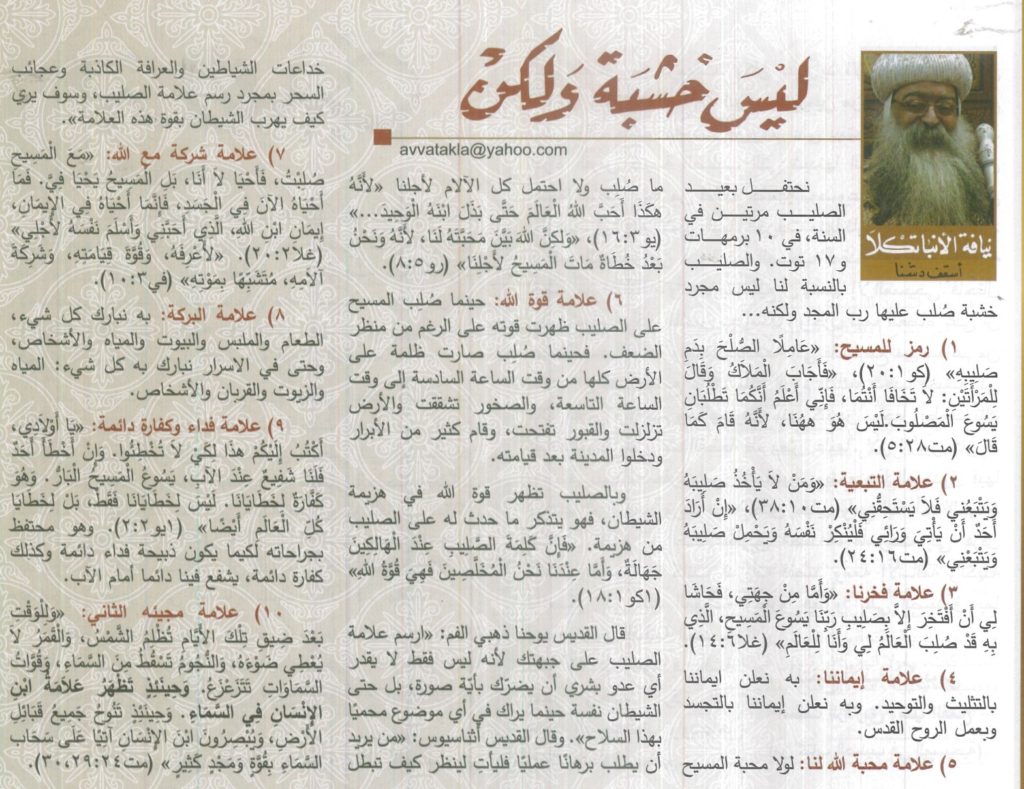 ليْسَ خشبَة وَلكِنْ
avvatakla@yahoo.com
نيافة الأنبا تكلا
أسقف دشنا
نحتفل بعيد
الصليب مرتين في
السنة، في ١٠ برمهات
و١٧ توت. والصليب
بالنسبة لنا ليس مجرد
خشبة صُلب عليها رب المجد ولكنه...
١) رمز للمسيح: «عَامِلًا الصُّلْحَ بِدَمِ
صَلِيبِهِ» (كو١:٢٠)، «فَأَجَابَ الْمَلاَكُ وَقَالَ
لِلْمَرْأَتَيْنِ: لاَ تَخَافَا أَنْتُمَا، فَإِنِّي أَعْلَمُ أَنَّكُمَا تَطْلُبَانِ
يَسُوعَ الْمَصْلُوبَ.لَيْسَ هُوَ هَهُنَا، لأَنَّهُ قَامَ كَمَا
قَالَ» (مت٢٨:٥).
٢) علامة التبعية: «وَمَنْ لاَ يَأْخُذُ صَلِيبَهُ
وَيَتْبَعُنِي فَلاَ يَسْتَحِقُّنِي» (مت١٠:٣٨)، «إِنْ أَرَادَ
أَحَدٌ أَنْ يَأْتِيَ وَرَائِي فَلْيُنْكِرْ نَفْسَهُ وَيَحْمِلْ صَلِيبَهُ
وَيَتْبَعْنِي» (مت١٦:٢٤).
٣) علامة فخرنا: «وَأَمَّا مِنْ جِهَتِي، فَحَاشَا
لِي أَنْ أَفْتَخِرَ إِلاَّ بِصَلِيبِ رَبِّنَا يَسُوعَ الْمَسِيحِ، الَّذِي
بِهِ قَدْ صُلِبَ الْعَالَمُ لِي وَأَنَا لِلْعَالَمِ» (غلا٦:١٤).
٤) علامة إيماننا: به نعلن ايماننا
بالتثليث والتوحيد. وبه نعلن إيماننا بالتجسد
وبعمل الروح القدس.
٥) علامة محبة الله لنا: لولا محبة المسيح
ما صُلِب ولا احتمل كل الآلام لأجلنا «لأَنَّهُ
هكَذَا أَحَبَّ اللهُ الْعَالَمَ حَتَّى بَذَلَ ابْنَهُ الْوَحِيدَ...»
(يو٣:١٦)، «وَلكِنَّ اللهَ بَيَّنَ مَحَبَّتَهُ لَنَا، لأَنَّهُ وَنَحْنُ
بَعْدُ خُطَاةٌ مَاتَ الْمَسِيحُ لأَجْلِنَا» (رو٥:٨).
٦) علامة قوة الله: حينما صُلِب المسيح
على الصليب ظهرت قوته على الرغم من منظر
الضعف. فحينما صُلِب صارت ظلمة على
الأرض كلها من وقت الساعة السادسة إلى وقت
الساعة التاسعة، والصخور تشققت والأرض
تزلزلت والقبور تفتحت، وقام كثير من الأبرار
ودخلوا المدينة بعد قيامته.
وبالصليب تظهر قوة الله في هزيمة
الشيطان، فهو يتذكر ما حدث له على الصليب
من هزيمة. «فَإِنَّ كَلِمَةَ الصَّلِيبِ عِنْدَ الْهَالِكِينَ
جَهَالَةٌ، وَأَمَّا عِنْدَنَا نَحْنُ الْمُخَلَّصِينَ فَهِيَ قُوَّةُ اللهِ»
(١كو١:١٨).
قال القديس يوحنا ذهبي الفم: «ارسم علامة
الصليب على جبهتك لأنه ليس فقط لا يقدر
أي عدو بشري أن يضرّك بأيّة صورة، بل حتى
الشيطان نفسة حينما يراك في أي موضوع محميًا
بهذا السلاح». وقال القديس أثناسيوس: «من يريد
أن يطلب برهانًا عمليًا فليأتِ لينظر كيف تبطل
خداعات الشياطين والعرافة الكاذبة وعجائب
السحر بمجرد رسم علامة الصليب، وسوف يري
كيف يهرب الشيطان بقوة هذه العلامة».
٧) علامة شركة مع الله: «مَعَ الْمَسِيحِ
صُلِبْتُ، فَأَحْيَا لاَ أَنَا، بَلِ الْمَسِيحُ يَحْيَا فِيَّ. فَمَا
أَحْيَاهُ الآنَ فِي الْجَسَدِ، فَإِنَّمَا أَحْيَاهُ فِي الإِيمَانِ،
إِيمَانِ ابْنِ اللهِ، الَّذِي أَحَبَّنِي وَأَسْلَمَ نَفْسَهُ لأَجْلِي»
(غلا٢:٢٠). «لأَعْرِفَهُ، وَقُوَّةَ قِيَامَتِهِ، وَشَرِكَةَ
آلاَمِهِ، مُتَشَبِّهًا بِمَوْتِهِ» (في٣:١٠).
٨) علامة البركة: به نبارك كل شيء،
الطعام والملبس والبيوت والمياه والأشخاص،
وحتى في الاسرار نبارك به كل شيء: المياه
والزيوت والقربان والأشخاص.
٩) علامة فداء وكفارة دائمة: «يَا أَوْلاَدِي،
أَكْتُبُ إِلَيْكُمْ هذَا لِكَيْ لاَ تُخْطِئُوا. وَإِنْ أَخْطَأَ أَحَدٌ
فَلَنَا شَفِيعٌ عِنْدَ الآبِ، يَسُوعُ الْمَسِيحُ الْبَارُّ. وَهُوَ
كَفَّارَةٌ لِخَطَايَانَا. لَيْسَ لِخَطَايَانَا فَقَطْ، بَلْ لِخَطَايَا
كُلِّ الْعَالَمِ أَيْضًا» (١يو٢:٢). وهو محتفظ
بجراحاته لكيما يكون ذبيحة فداء دائمة وكذلك
كفارة دائمة، يشفع فينا دائما أمام الآب.
١٠) علامة مجيئه الثاني: «وَلِلْوَقْتِ
بَعْدَ ضِيقِ تِلْكَ الأَيَّامِ تُظْلِمُ الشَّمْسُ، وَالْقَمَرُ لاَ
يُعْطِي ضَوْءَهُ، وَالنُّجُومُ تَسْقُطُ مِنَ السَّمَاءِ، وَقُوَّاتُ
السَّمَاوَاتِ تَتَزَعْزَعُ. وَحِينَئِذٍ تَظْهَرُ عَلاَمَةُ ابْنِ
الإِنْسَانِ فِي السَّمَاءِ. وَحِينَئِذٍ تَنُوحُ جَمِيعُ قَبَائِلِ
الأَرْضِ، وَيُبْصِرُونَ ابْنَ الإِنْسَانِ آتِيًا عَلَى سَحَابِ
السَّمَاءِ بِقُوَّةٍ وَمَجْدٍ كَثِيرٍ» (مت٢٤:٢٩، ٣٠).